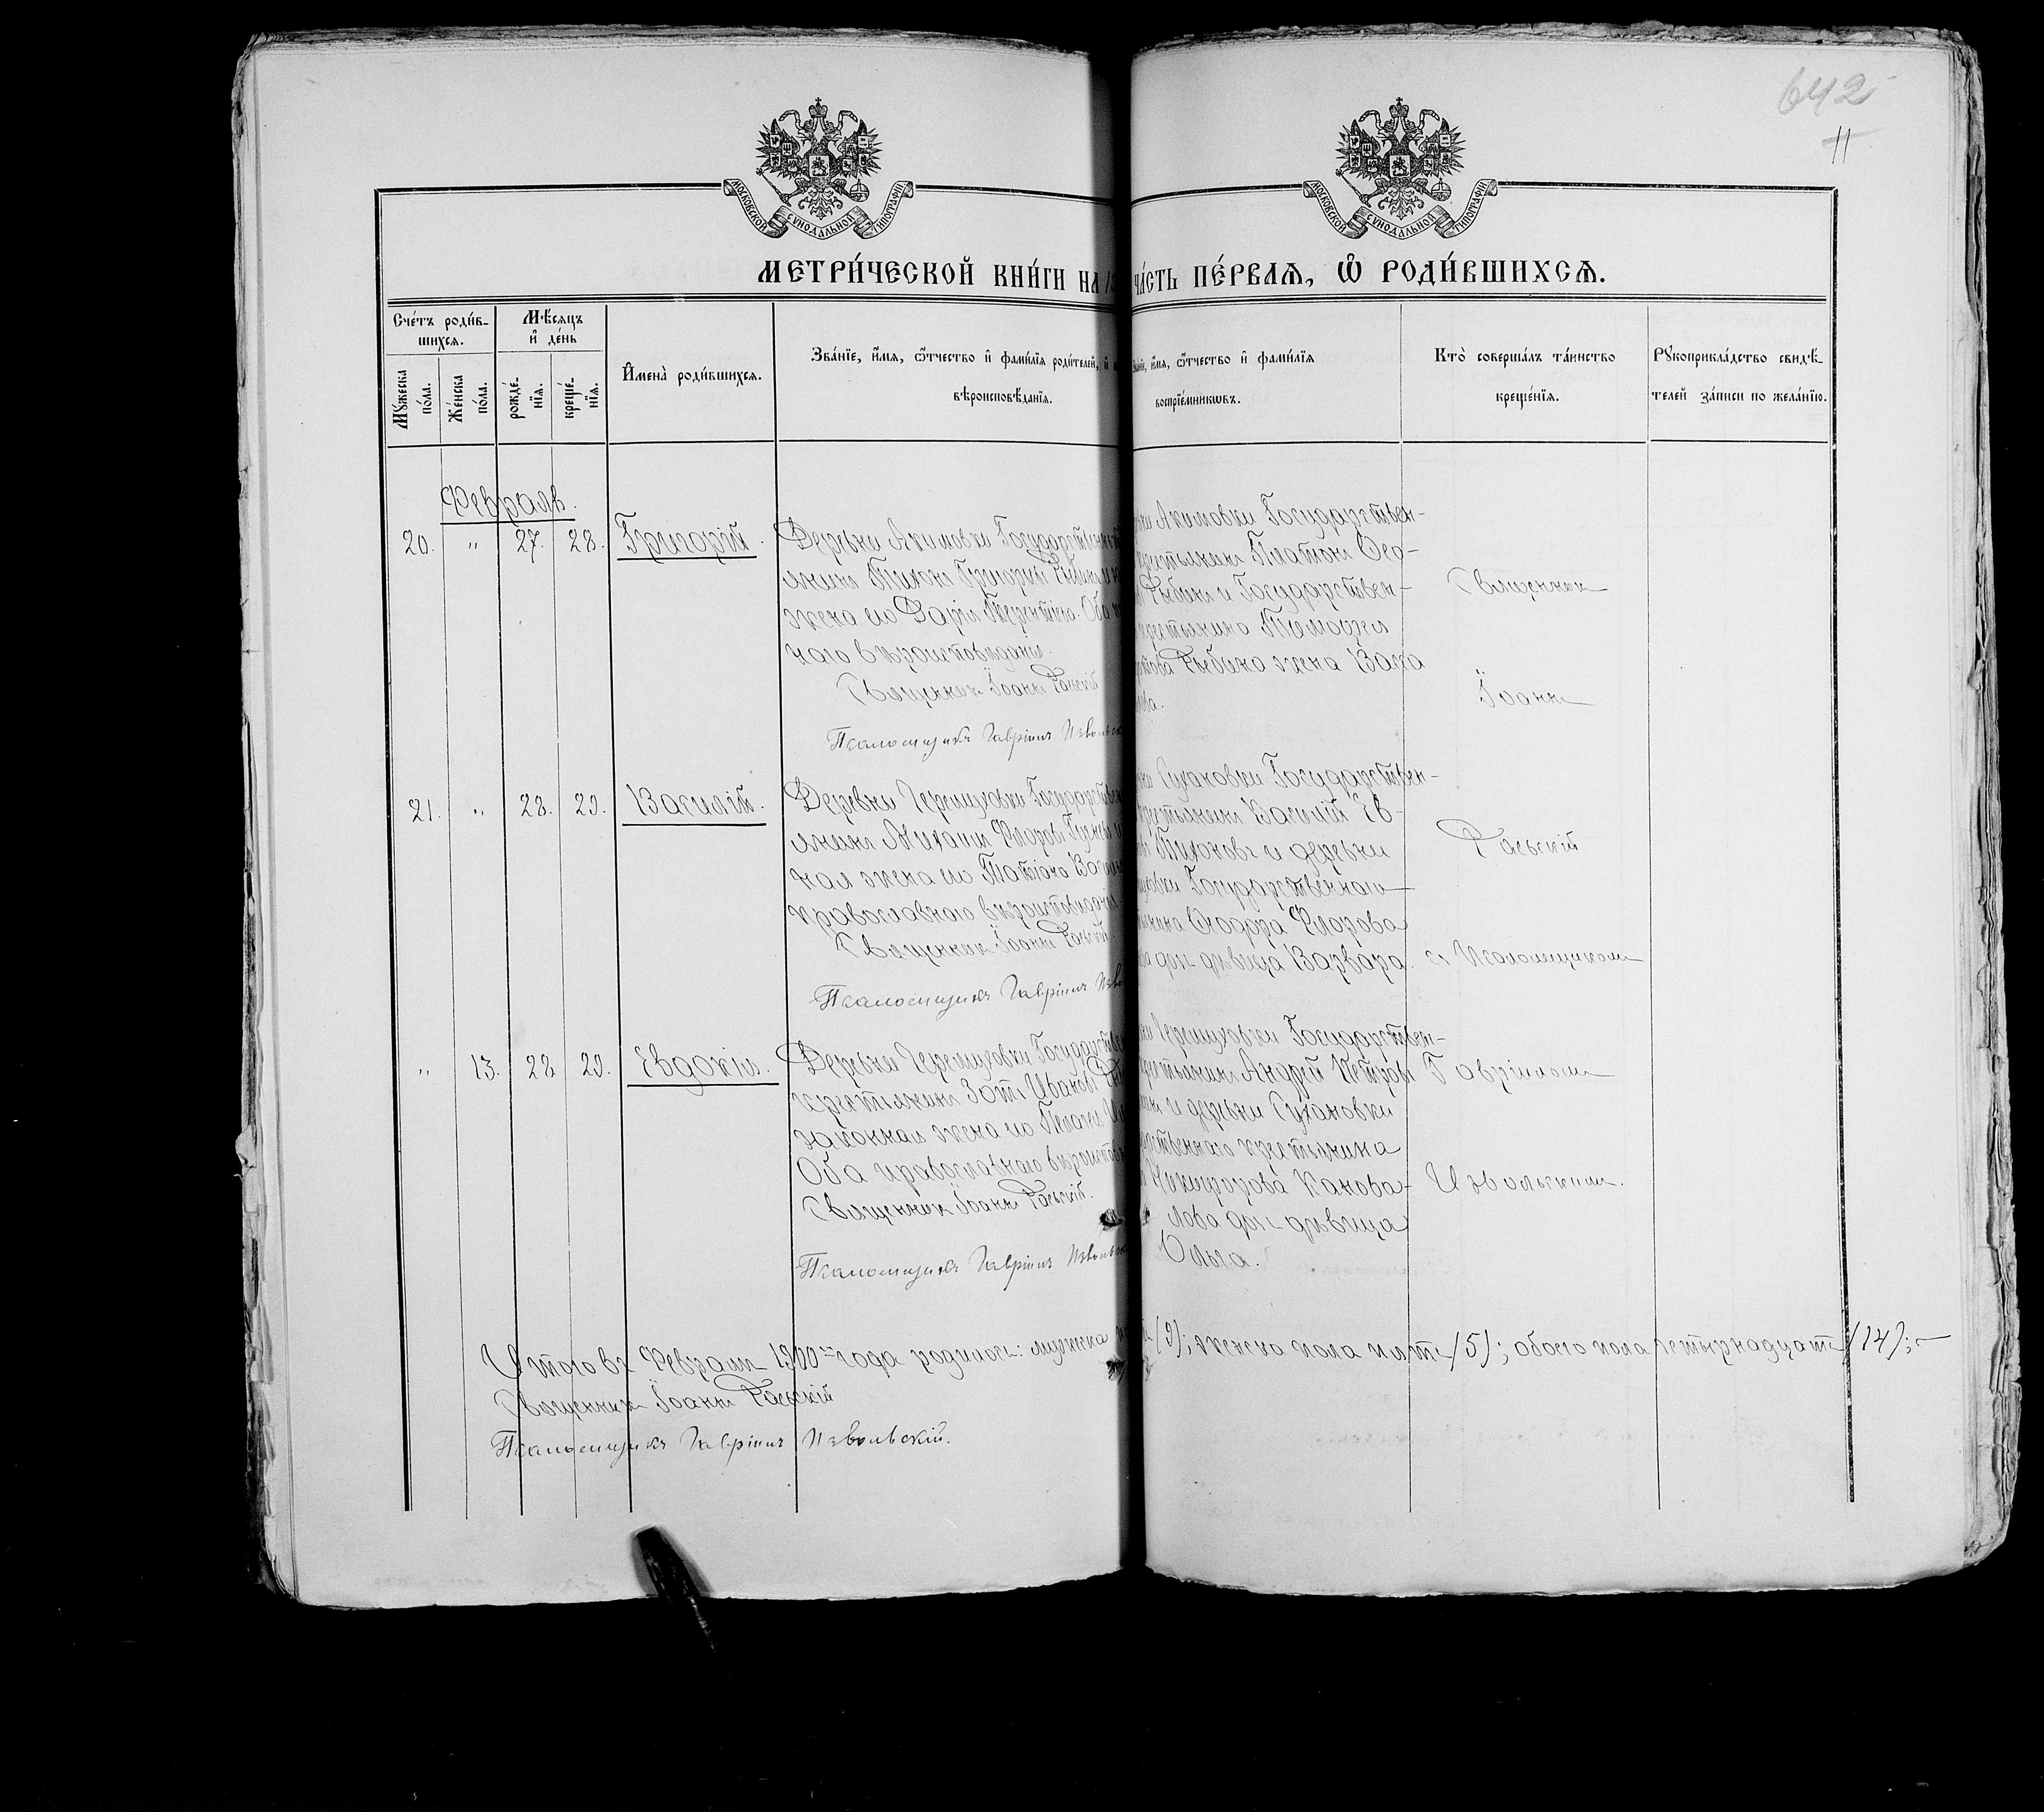 642
11
МОСКОВСКОЙ СѴНОДАЛЬНОЙ ТИПОГРАФІИ
МОСКОВСКОЙ СѴНОДАЛЬНОЙ ТИПОГРАФІИ
МЕТРИ́ЧЕСКОЙ КНИ́ГИ НА 19
ЧА́СТЬ ПЕ́РВАЯ, Ѿ РОДИ́ВШИХСЯ.
Сче́тъ роди́в-
шихся.
Мѣ́сяцъ
и҆ де́нь
Мꙋ́жеска
по́ла.
Же́нска
по́ла.
рожде́-
нїя.
креще́-
нїя.
И҆мена̀ роди́вшихся.
Зва́нїе, и҆́мя, ѻ҆́тчество и҆ фамилїѧ роди́телей, и҆
вѣроисповѣ́данїя.
Зва́нїе, и҆́мя, ѻ҆́тчество и҆ фами́лїя
воспрїе́мникѡвъ.
Кто̀ соверша́лъ та́инство
креще́нїя.
Рꙋкоприкла́дство свидѣ́-
телей за́писи по жела́нїю.
Февраль.
20. " 27. 28. Григорій.
Деревни Акимовки Государственный
янинъ Тихонъ Григорьевъ Рыбинъ и
жена его Дарія Терентіева. Оба
наго вѣроисповѣданія.
Священникъ Іоаннъ Раевскій
Псаломщикъ Гавріилъ Извольск
Акимовки Государствен-
крестьянинъ Платонъ
Рыбинъ и Государствен-
крестьянина Тимофея
Рыбина жена Васса
Священникъ
Іоаннъ
21. " 28. 29. Василій.
Деревни Черемуховки Государствен
янинъ Михаилъ Флоровъ
ная жена его Татіана
православнаго вѣроисповѣданія.
Священникъ Іоаннъ Раевскій.
Псаломщикъ Гавріилъ Изво
Сухановки Государствен-
крестьянинъ Василій Ев-
Тихоновъ и деревни
Государственнаго
Ѳеодора Флорова
дочь дѣвица Варвара.
Раевскій
съ Псаломщикомъ
" 13. 28 29. Евдокія.
Деревни Черемуховки Государствен
крестьянинъ Зотъ Ивановъ
законная жена его Пелагія
Оба православнаго вѣроисповѣ
Священникъ Іоаннъ Раевскій.
Псаломщикъ Гавріилъ Извольск
Черемуховки Государствен-
крестьянинъ Андрей Петровъ
и деревни Сухановки
крестьянина
Никифорова Канова-
лова дочь дѣвица
Ольга.
Гавріиломъ
Извольскимъ.
Итого въ Февралѣ 1900го года родилось: мужска
(9); женска пола пять (5); обоего пола четырнадцать (14);
Священникъ Іоаннъ Раевскій
Псаломщикъ Гавріилъ Извольскій.